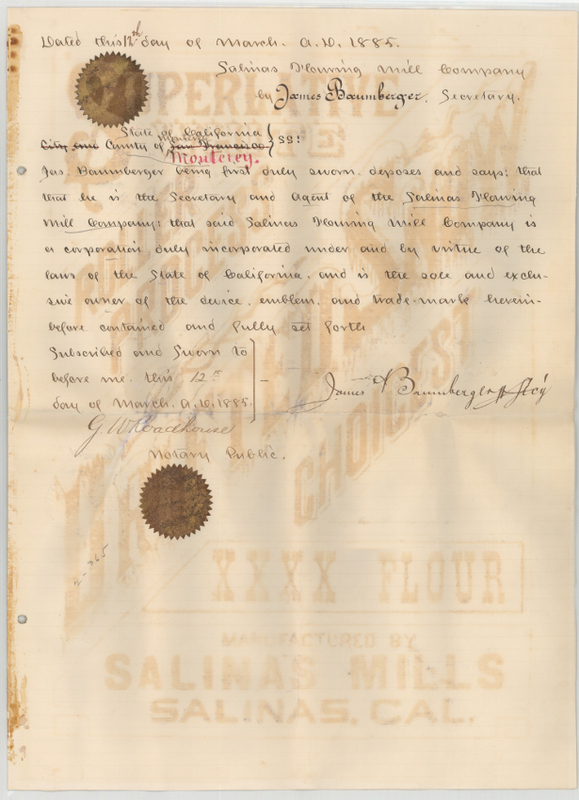 Dated this 12th day of March. A.D. 1885.
Salinas Flouring Mill Company
by James Baumberger. Secretary.
State of California
City and County of San Francisco } SS:
Monterey
Monterey.
Jas. Baumberger being first duly sworn, deposes and says; that
that he is the Secretary and Agent of the Salinas Flouring
Mill Company; that said Salinas Flouring Mill Company is
a corporation duly incorporated under and by virtue of the
laws of the State of California, and is the sole and exclu-
sive owner of the device, emblem, and trade-mark herein-
before contained and fully set forth
Subscribed and Sworn to
before me, this 12th
day of March. A.D. 1885.
James Baumberger Secy
G. W. Roadhouse
Notary Public.
2-365
SUPERLATIVE
CHOICEST
XXXX FLOUR
MANUFACTURED BY
SALINAS MILLS
SALINAS, CAL.